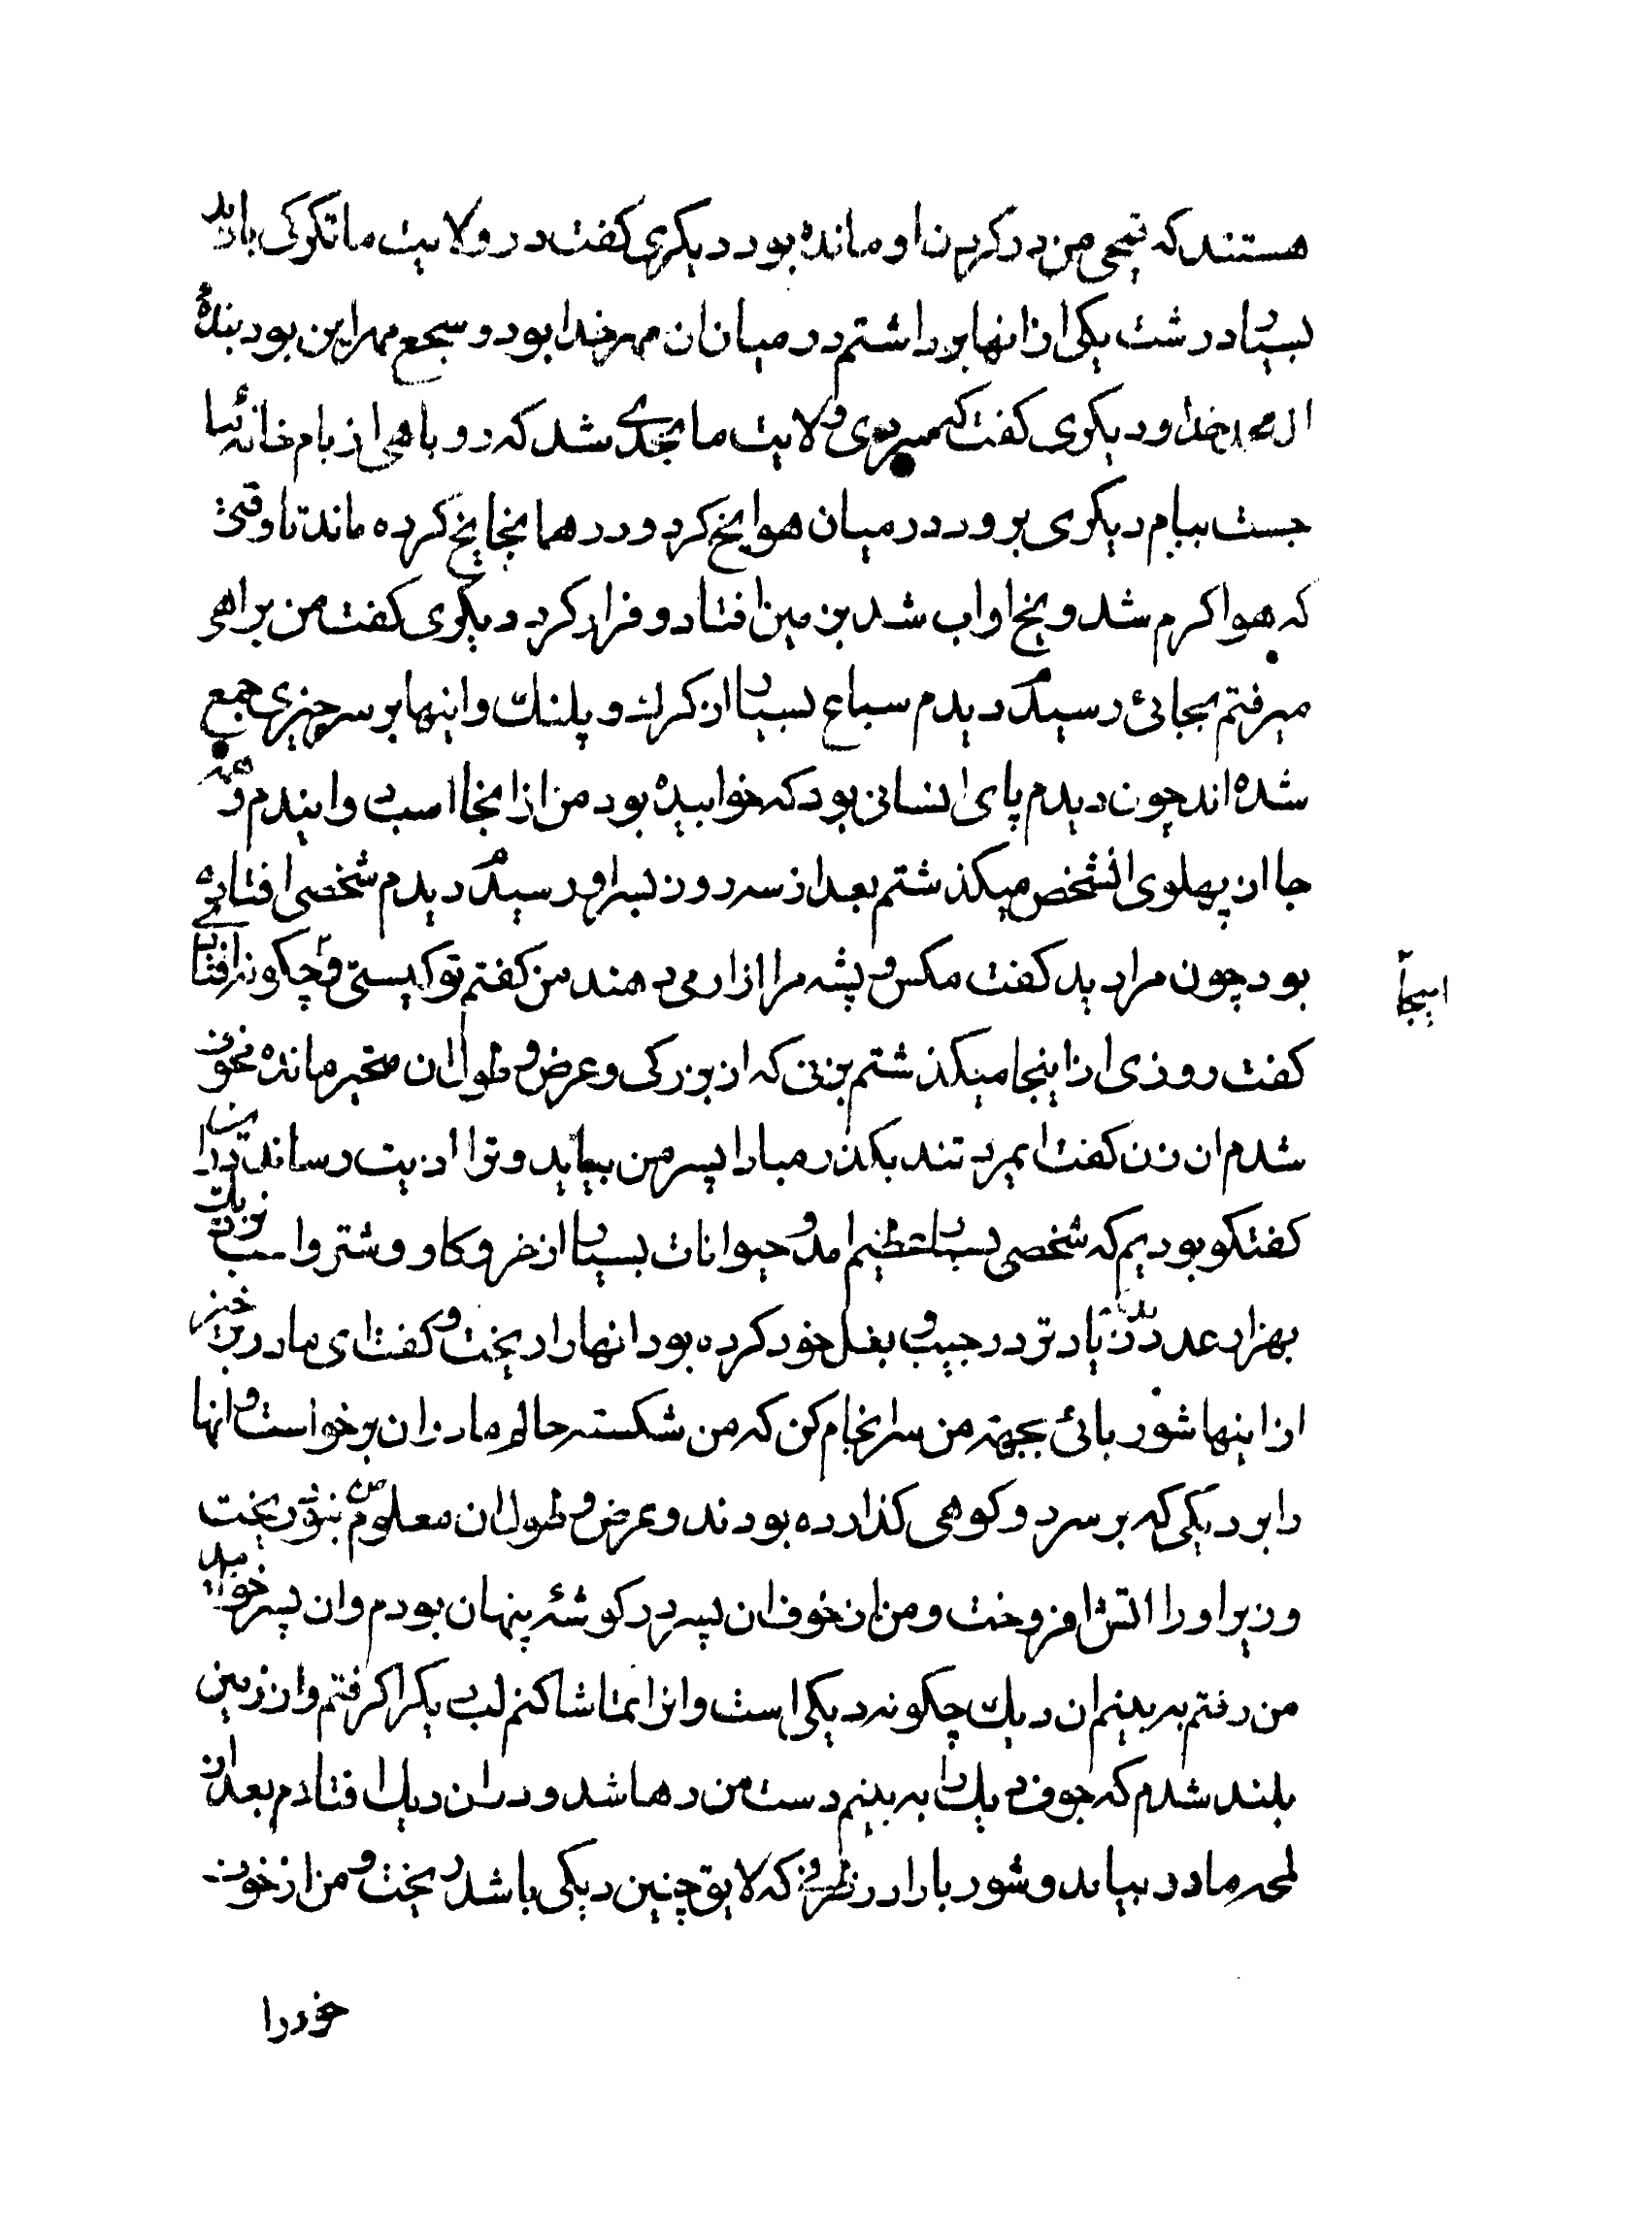 هستند که نیمی من در کردن او مانده بود دیکری کفت در ولایت ما تکرکی بارید
بسیار درشت یکی از انها برداشتم در میان ان مهر خدا بود و سجع مهر این بود بندهٔ
ال محمد خدا و دیکری کفت که سردی ولایت ما بحدی شد که روباهی از بام خانهٔ
جست ببام دیکری برود در میان هوا یخ کرد و در همانجا یخ کرده ماند تا وقتی
که هوا کرم شد و یخ او اب شد بزمین افتاد و فرار کرد دیکری کفت من براهی
میرفتم بجائی رسیدم دیدم سباع بسیار از کرک و پلنک و اینها بر سر چیزی جمع
شده اند چون دیدم پای انسانی بود که خوابیده بود من از انجا اسب دوانیدم و همه
جا از پهلوی انشخص میکذشتم بعد از سه روز بسر او رسیدم دیدم شخصی افتاده
بود چون مرا دید کفت مکس و پشه مرا ازار می دهند من کفتم تو کیستی و چکونه افتادهٔ
اینجا
کفت روزی از اینجا میکذشتم بزنی که از بزرکی و عرض و طول ان متحیر مانده محو ان
شدم ان زن کفت ایمرد تند بکذر مبادا پسر من بیاید و ترا اذیت رساند در این
کفتکو بودیم که شخصی بسیار عظیم امد و حیوانات بسیار از خر و کاو و شتر و اسب نزدیک
بهزار عدد بلکه زیادتر در جیب و بغل خود کرده بود انها را ریخت و کفت ای مادر برخیز
از اینها شوربائی بجهة من سرانجام کن که من شکسته حالم مادر ان برخواست و انها
را بر دیکی که بر سر دو کوهی کذارده بودند و عرض و طول ان معلوم من نبود ریخت
و زیر او را اتش افروخت و من از خوف ان پسر در کوشهٔ پنهان بودم و ان پسر خوابید
من رفتم به بینم ان دیک چکونه دیکی است و انرا تماشا کنم لب دیک را کرفتم و از زمین
بلند شدم که جوف دیک را به بینم دست من رها شد و در ان دیک افتادم بعد از
لمحه مادر بیامد و شوربا را در ظرفی که لایق چنین دیکی باشد ریخت و من از خوف
خود را